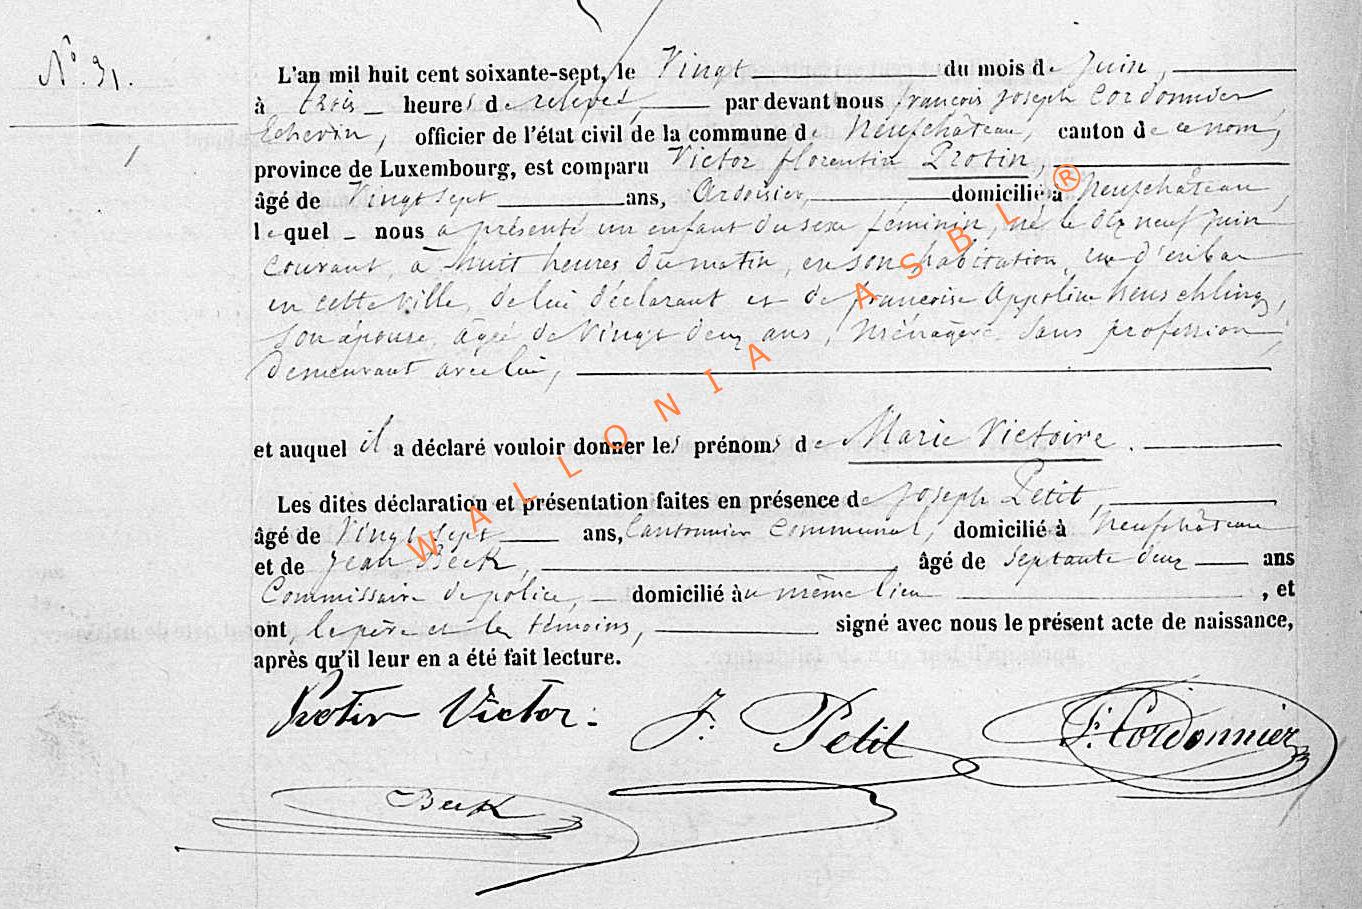 N° 31.
L'an mil huit cent soixante-sept, le Vingt du mois de Juin,
à trois heures de relevée, par devant nous françois Joseph Cordonnier
Echevin, officier de l'état civil de la commune de Neufchâteau, canton de ce nom,
province de Luxembourg, est comparu Victor florentin Protin,
âgé de Vingt sept ans, Ardoisier, domicilié à Neufchâteau,
lequel nous a présenté un enfant du sexe féminin, né le dix neuf Juin
courant à huit heures du matin, en son habitation, rue
en cette ville, de lui déclarant et de françoise Appoline Neuschling,
son épouse, âgée de Vingt deux ans, Ménagère sans profession,
demeurant avec lui,
et auquel il a déclaré vouloir donner les prénoms de Marie Victoire.
Les dites déclaration et présentation faites en présence de Joseph Petit,
âgé de Vingt sept ans, Cantonnier communal, domicilié à Neufchâteau
et de Jean Beck, âgé de Septante deux ans
Commissaire de police, domicilié au même lieu, et
ont, le père et les témoins, signé avec nous le présent acte de naissance,
après qu'il leur en a été fait lecture.
Protin Victor. J. Petit F. Cordonnier
Beck
WALLONIA ASBL ®